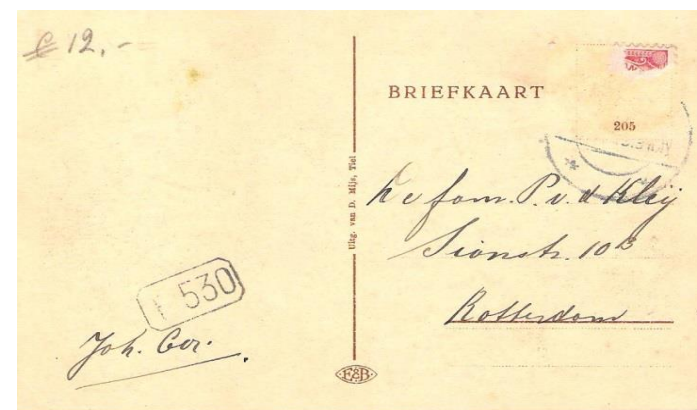 € 12,-
BRIEFKAART
205
Uitg. van D. Mijs, Tiel
De fam. P. v. d. Kleij
Sionstr. 10B
Rotterdam
530
Joh. Cor.
F&B